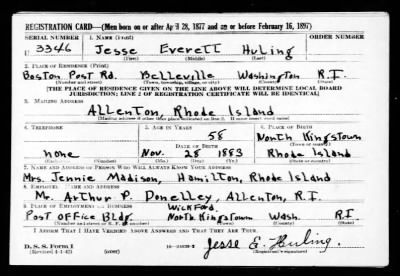 REGISTRATION CARD—(Men born on or after April 28, 1877 and on or before February 16, 1897)
SERIAL NUMBER 1. NAME (Print) ORDER NUMBER
U 3346 Jesse Everett Huling
(First) (Middle) (Last)
2. PLACE OF RESIDENCE (Print)
Boston Post Rd. Belleville Washington R.I.
(Number and street) (Town, township, village, or city) (County) (State)
[THE PLACE OF RESIDENCE GIVEN ON THE LINE ABOVE WILL DETERMINE LOCAL BOARD
JURISDICTION; LINE 2 OF REGISTRATION CERTIFICATE WILL BE IDENTICAL]
3. MAILING ADDRESS
Allenton, Rhode Island
[Mailing address if other than place indicated on line 2. If same insert word same]
4. TELEPHONE 5. AGE IN YEARS 6. PLACE OF BIRTH
58 North Kingstown
DATE OF BIRTH (Town or county)
none Nov. 28 1883 Rhode Island
(Exchange) (Number) (Mo.) (Day) (Yr.) (State or country)
7. NAME AND ADDRESS OF PERSON WHO WILL ALWAYS KNOW YOUR ADDRESS
Mrs. Jennie Madison, Hamilton, Rhode Island
8. EMPLOYER'S NAME AND ADDRESS
Mr. Arthur P. Donelley, Allenton, R.I.
9. PLACE OF EMPLOYMENT OR BUSINESS Wickford.
Post Office Bldg. North Kingstown Wash. R.I.
(Number and street or R. F. D. number) (Town) (County) (State)
I AFFIRM THAT I HAVE VERIFIED ABOVE ANSWERS AND THAT THEY ARE TRUE.
D. S. S. Form 1
(Revised 4-1-42) (over) Jesse E. Huling.